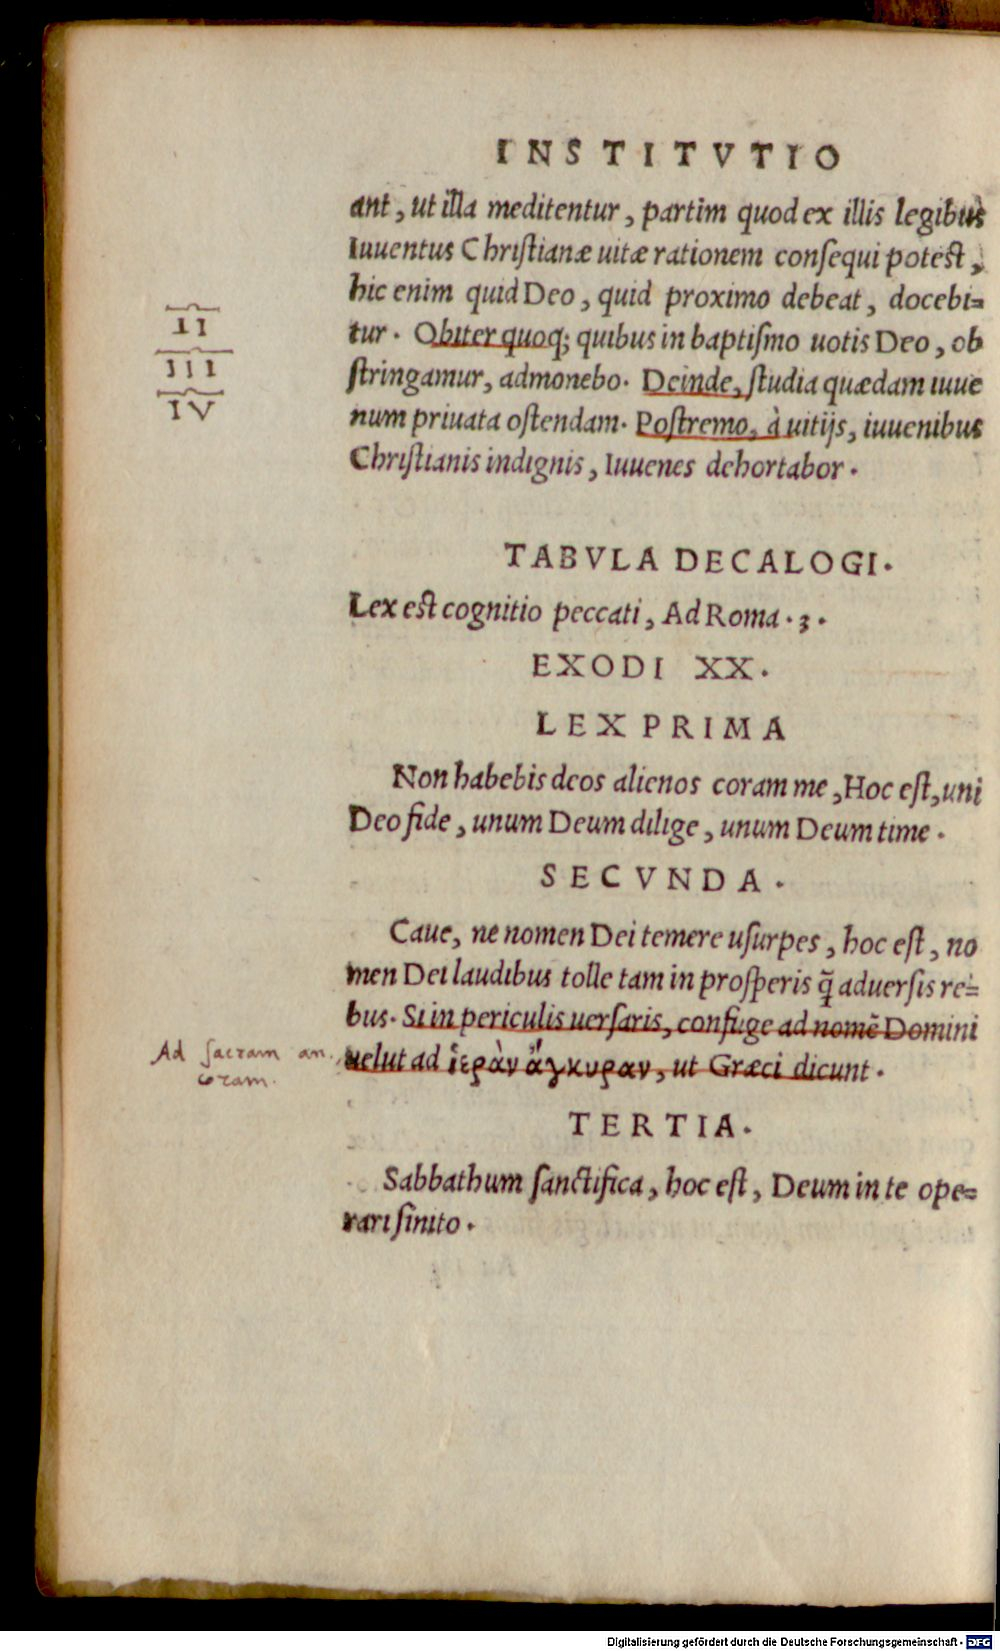 INSTITVTIO
ant, ut illa meditentur, partim quod ex illis legibus
Iuuentus Christianæ uitæ rationem consequi potest,
hic enim quid Deo, quid proximo debeat, docebi=
tur. Obiter quoq; quibus in baptismo uotis Deo, ob
stringamur, admonebo. Deinde, studia quædam iuue
num priuata ostendam. Postremo, à uitijs, iuuenibus
Christianis indignis, Iuuenes dehortabor.
II
III
IV
TABVLA DECALOGI.
Lex est cognitio peccati, Ad Roma. 3.
EXODI XX.
LEX PRIMA
Non habebis deos alienos coram me, Hoc est, uni
Deo fide, unum Deum dilige, unum Deum time.
SECVNDA.
Caue, ne nomen Dei temere usurpes, hoc est, no
men Dei laudibus tolle tam in prosperis q̃ aduersis re=
bus. Si in periculis uersaris, confuge ad nomē Domini
uelut ad ἱερὰν ἄγκυραν, ut Græci dicunt.
Ad sacram an
coram.
TERTIA.
Sabbathum sanctifica, hoc est, Deum in te ope=
rari sinito.
Digitalisierung gefördert durch die Deutsche Forschungsgemeinschaft - DFG